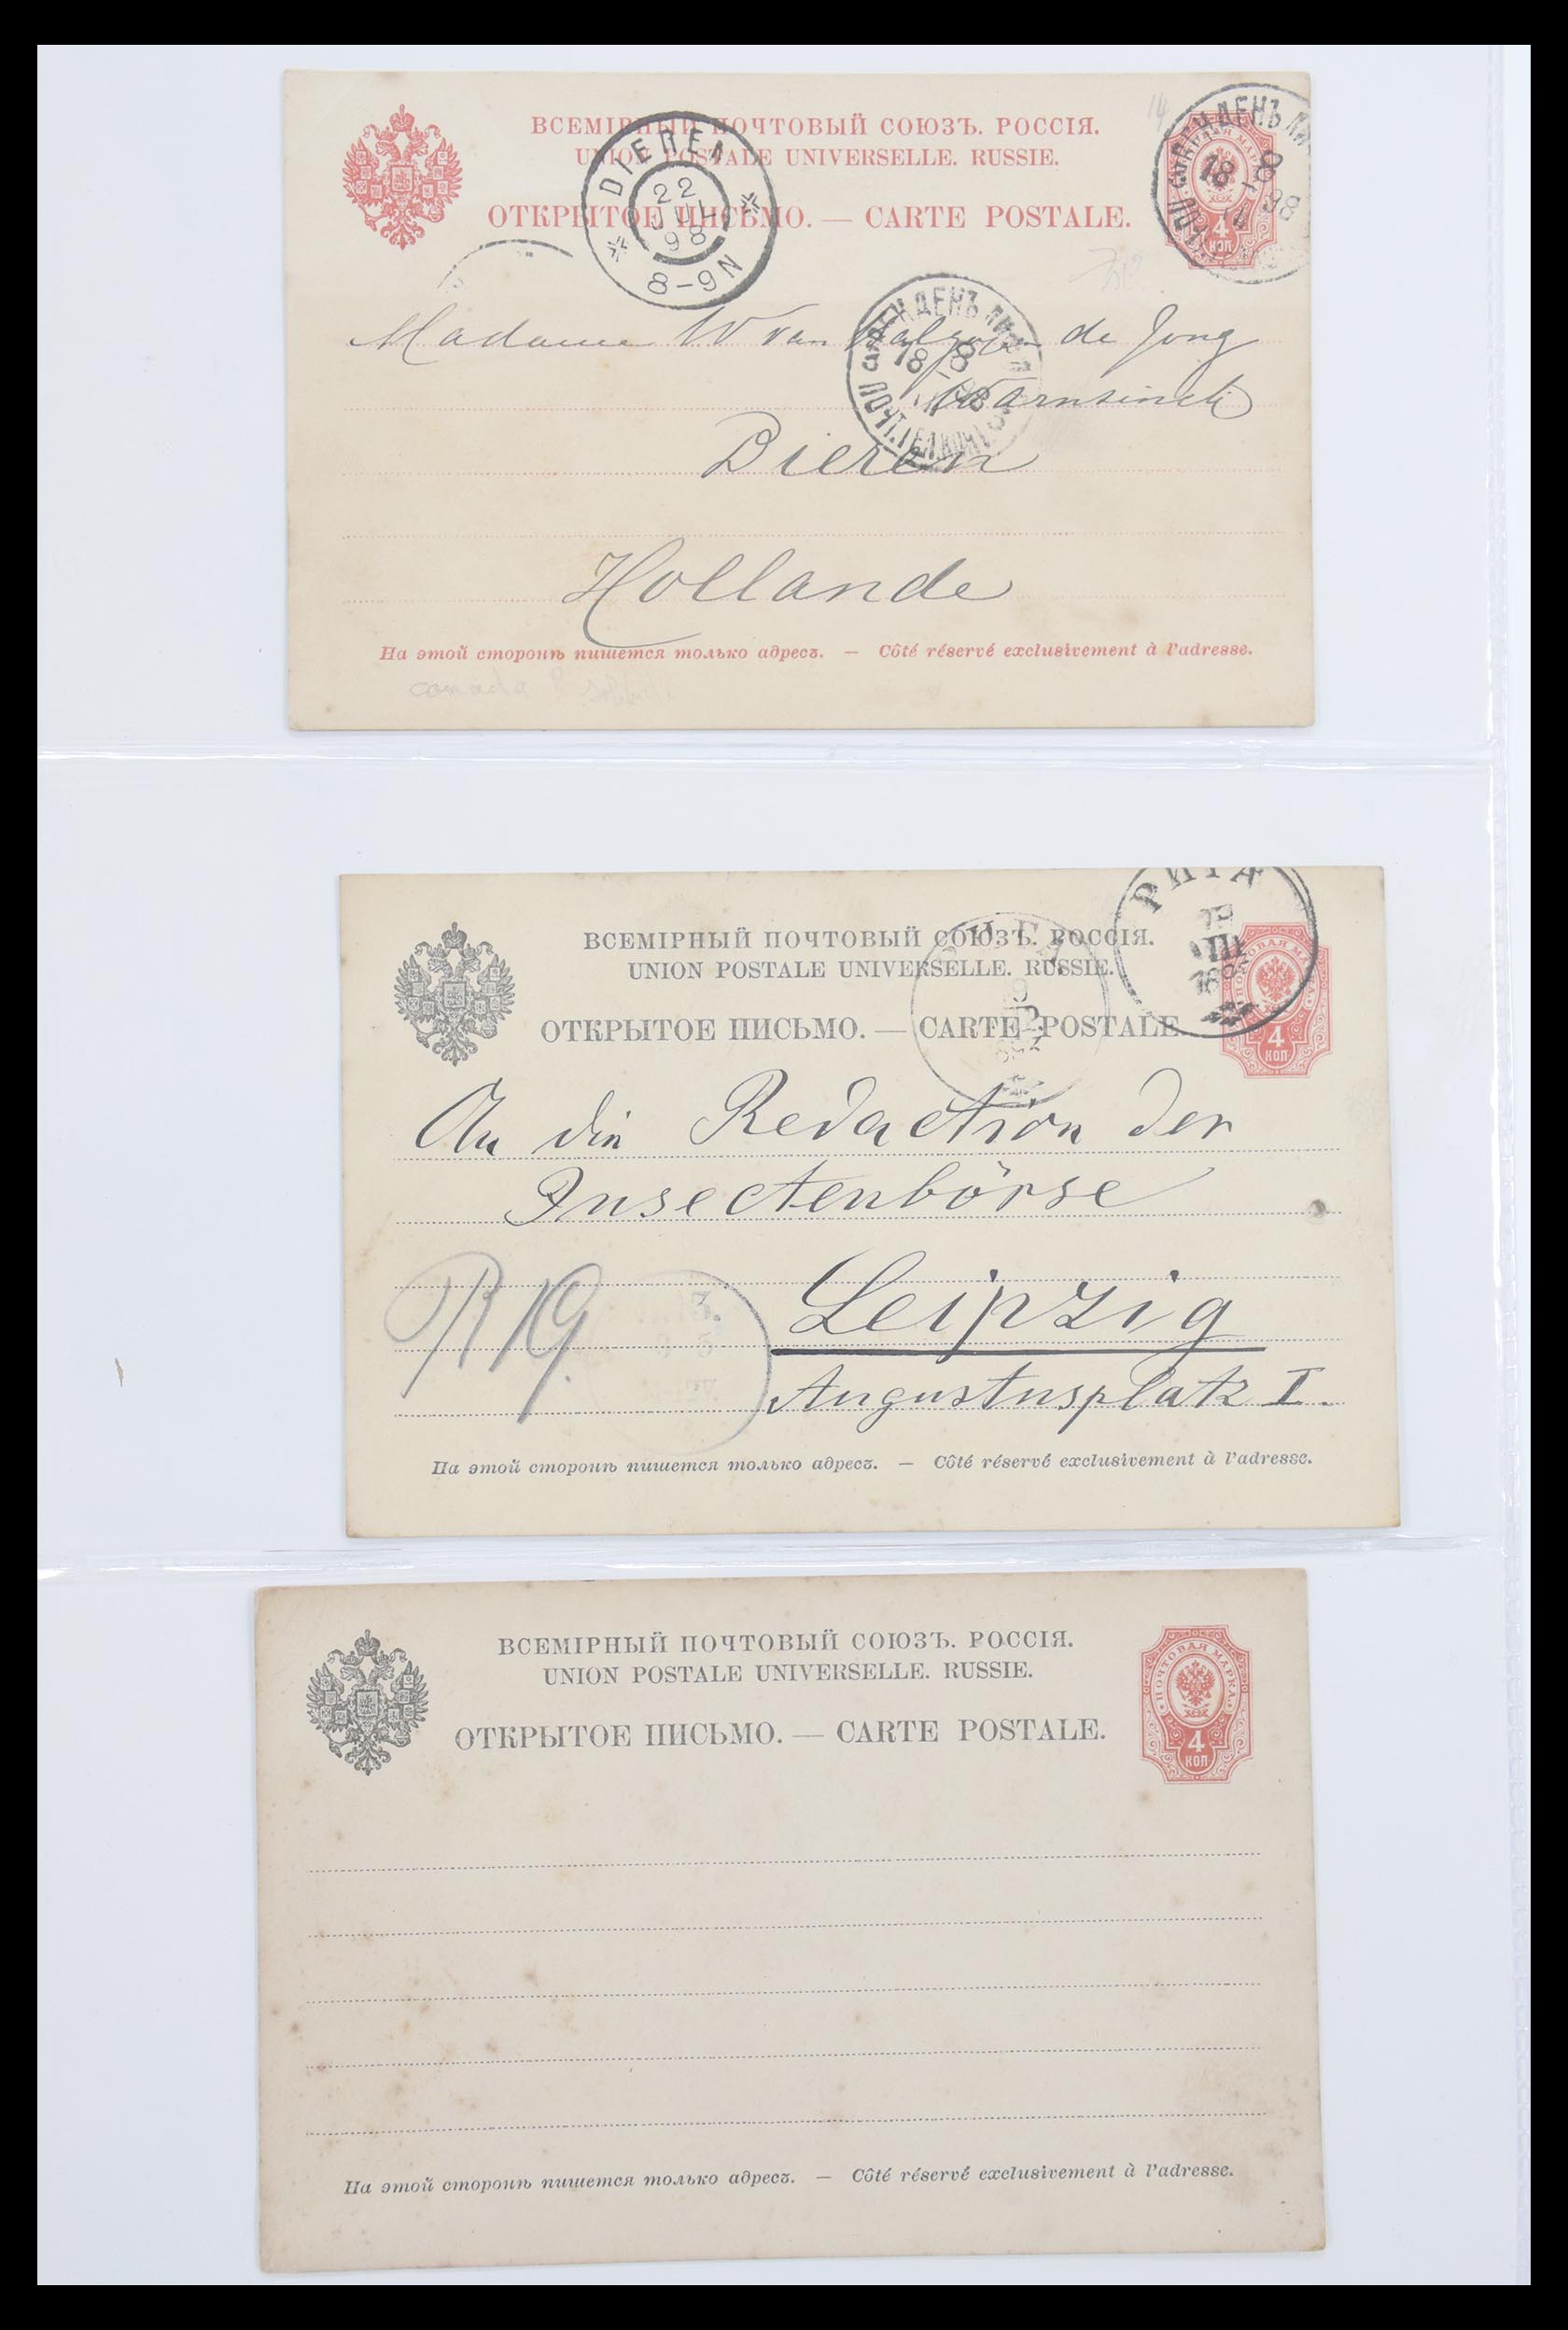 ВСЕМІРНЫЙ ПОЧТОВЫЙ СОЮЗЪ. РОССІЯ.
UNION POSTALE UNIVERSELLE. RUSSIE.
ОТКРЫТОЕ ПИСЬМО. — CARTE POSTALE.
DIEREN
22
JUL
98
8-9N
18 8
98
4
КОП
18 8
Madame W van de Jong
Warnsinck
Dieren
Hollande
На этой сторонѣ пишется только адресъ. — Côté réservé exclusivement à l'adresse.
canada
РИГА
ВСЕМІРНЫЙ ПОЧТОВЫЙ СОЮЗЪ. РОССІЯ.
UNION POSTALE UNIVERSELLE. RUSSIE.
ОТКРЫТОЕ ПИСЬМО. — CARTE POSTALE.
ПОЧТОВАЯ МАРКА
4
КОП
An die Redaction der
Insectenbörse
R 19.
Leipzig
Augustusplatz I.
На этой сторонѣ пишется только адресъ. — Côté réservé exclusivement à l'adresse.
ВСЕМІРНЫЙ ПОЧТОВЫЙ СОЮЗЪ. РОССІЯ.
UNION POSTALE UNIVERSELLE. RUSSIE.
ОТКРЫТОЕ ПИСЬМО. — CARTE POSTALE.
ПОЧТОВАЯ МАРКА
4
КОП
На этой сторонѣ пишется только адресъ. — Côté réservé exclusivement à l'adresse.